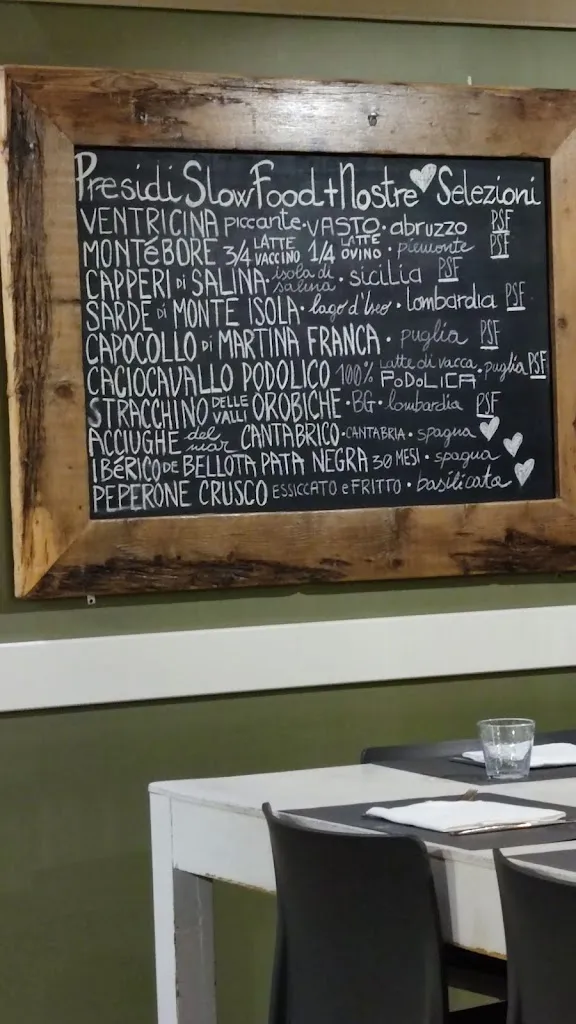 Presidi SlowFood + Nostre ♥ Selezioni
VENTRICINA piccante · VASTO · abruzzo PSF
MONTéBORE 3/4 LATTE VACCINO 1/4 LATTE OVINO · piemonte PSF
CAPPERI DI SALINA · isola di salina · sicilia PSF
SARDE DI MONTE ISOLA · lago d'Iseo · lombardia PSF
CAPOCOLLO DI MARTINA FRANCA · puglia PSF
CACIOCAVALLO PODOLICO 100% latte di vacca PODOLICA · puglia PSF
STRACCHINO DELLE VALLI OROBICHE · BG · lombardia PSF
ACCIUGHE del mar CANTABRICO · CANTABRIA · spagna ♥
IBéRICO DE BELLOTA PATA NEGRA 30 MESI · spagna ♥
PEPERONE CRUSCO ESSICCATO e FRITTO · basilicata ♥